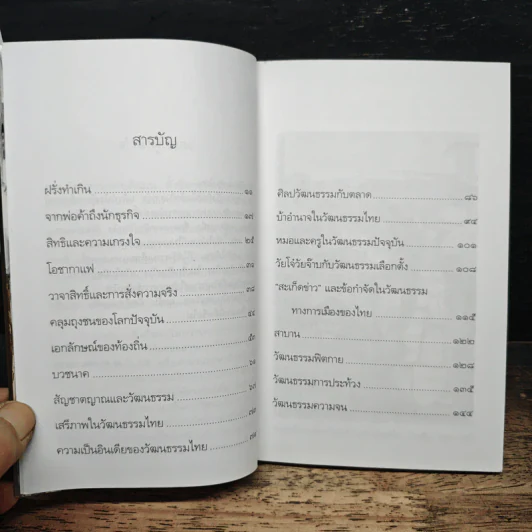 สารบัญ
ฝรั่งทำเกิน ๑๑
จากพ่อค้าถึงนักธุรกิจ ๑๗
สิทธิและความเกรงใจ ๒๕
โอชากาแฟ ๓๑
วาจาสิทธิ์และการสั่งความจริง ๓๘
คลุมถุงชนของโลกปัจจุบัน ๔๔
เอกลักษณ์ของท้องถิ่น ๕๓
บวชนาค ๖๑
สัญชาตญาณและวัฒนธรรม ๖๗
เสรีภาพในวัฒนธรรมไทย
ความเป็นอินเดียของวัฒนธรรมไทย
ศิลปวัฒนธรรมกับตลาด ๘๖
บ้าอำนาจในวัฒนธรรมไทย ๙๔
หมอและครูในวัฒนธรรมปัจจุบัน ๑๐๑
วัยโจ๋วัยจ๊าบกับวัฒนธรรมเลือกตั้ง ๑๐๘
"สะเก็ดข่าว" และข้อกำจัดในวัฒนธรรม
ทางการเมืองของไทย ๑๑๕
สาบาน ๑๒๒
วัฒนธรรมฟิตกาย ๑๒๘
วัฒนธรรมการประท้วง ๑๓๕
วัฒนธรรมความจน ๑๔๔